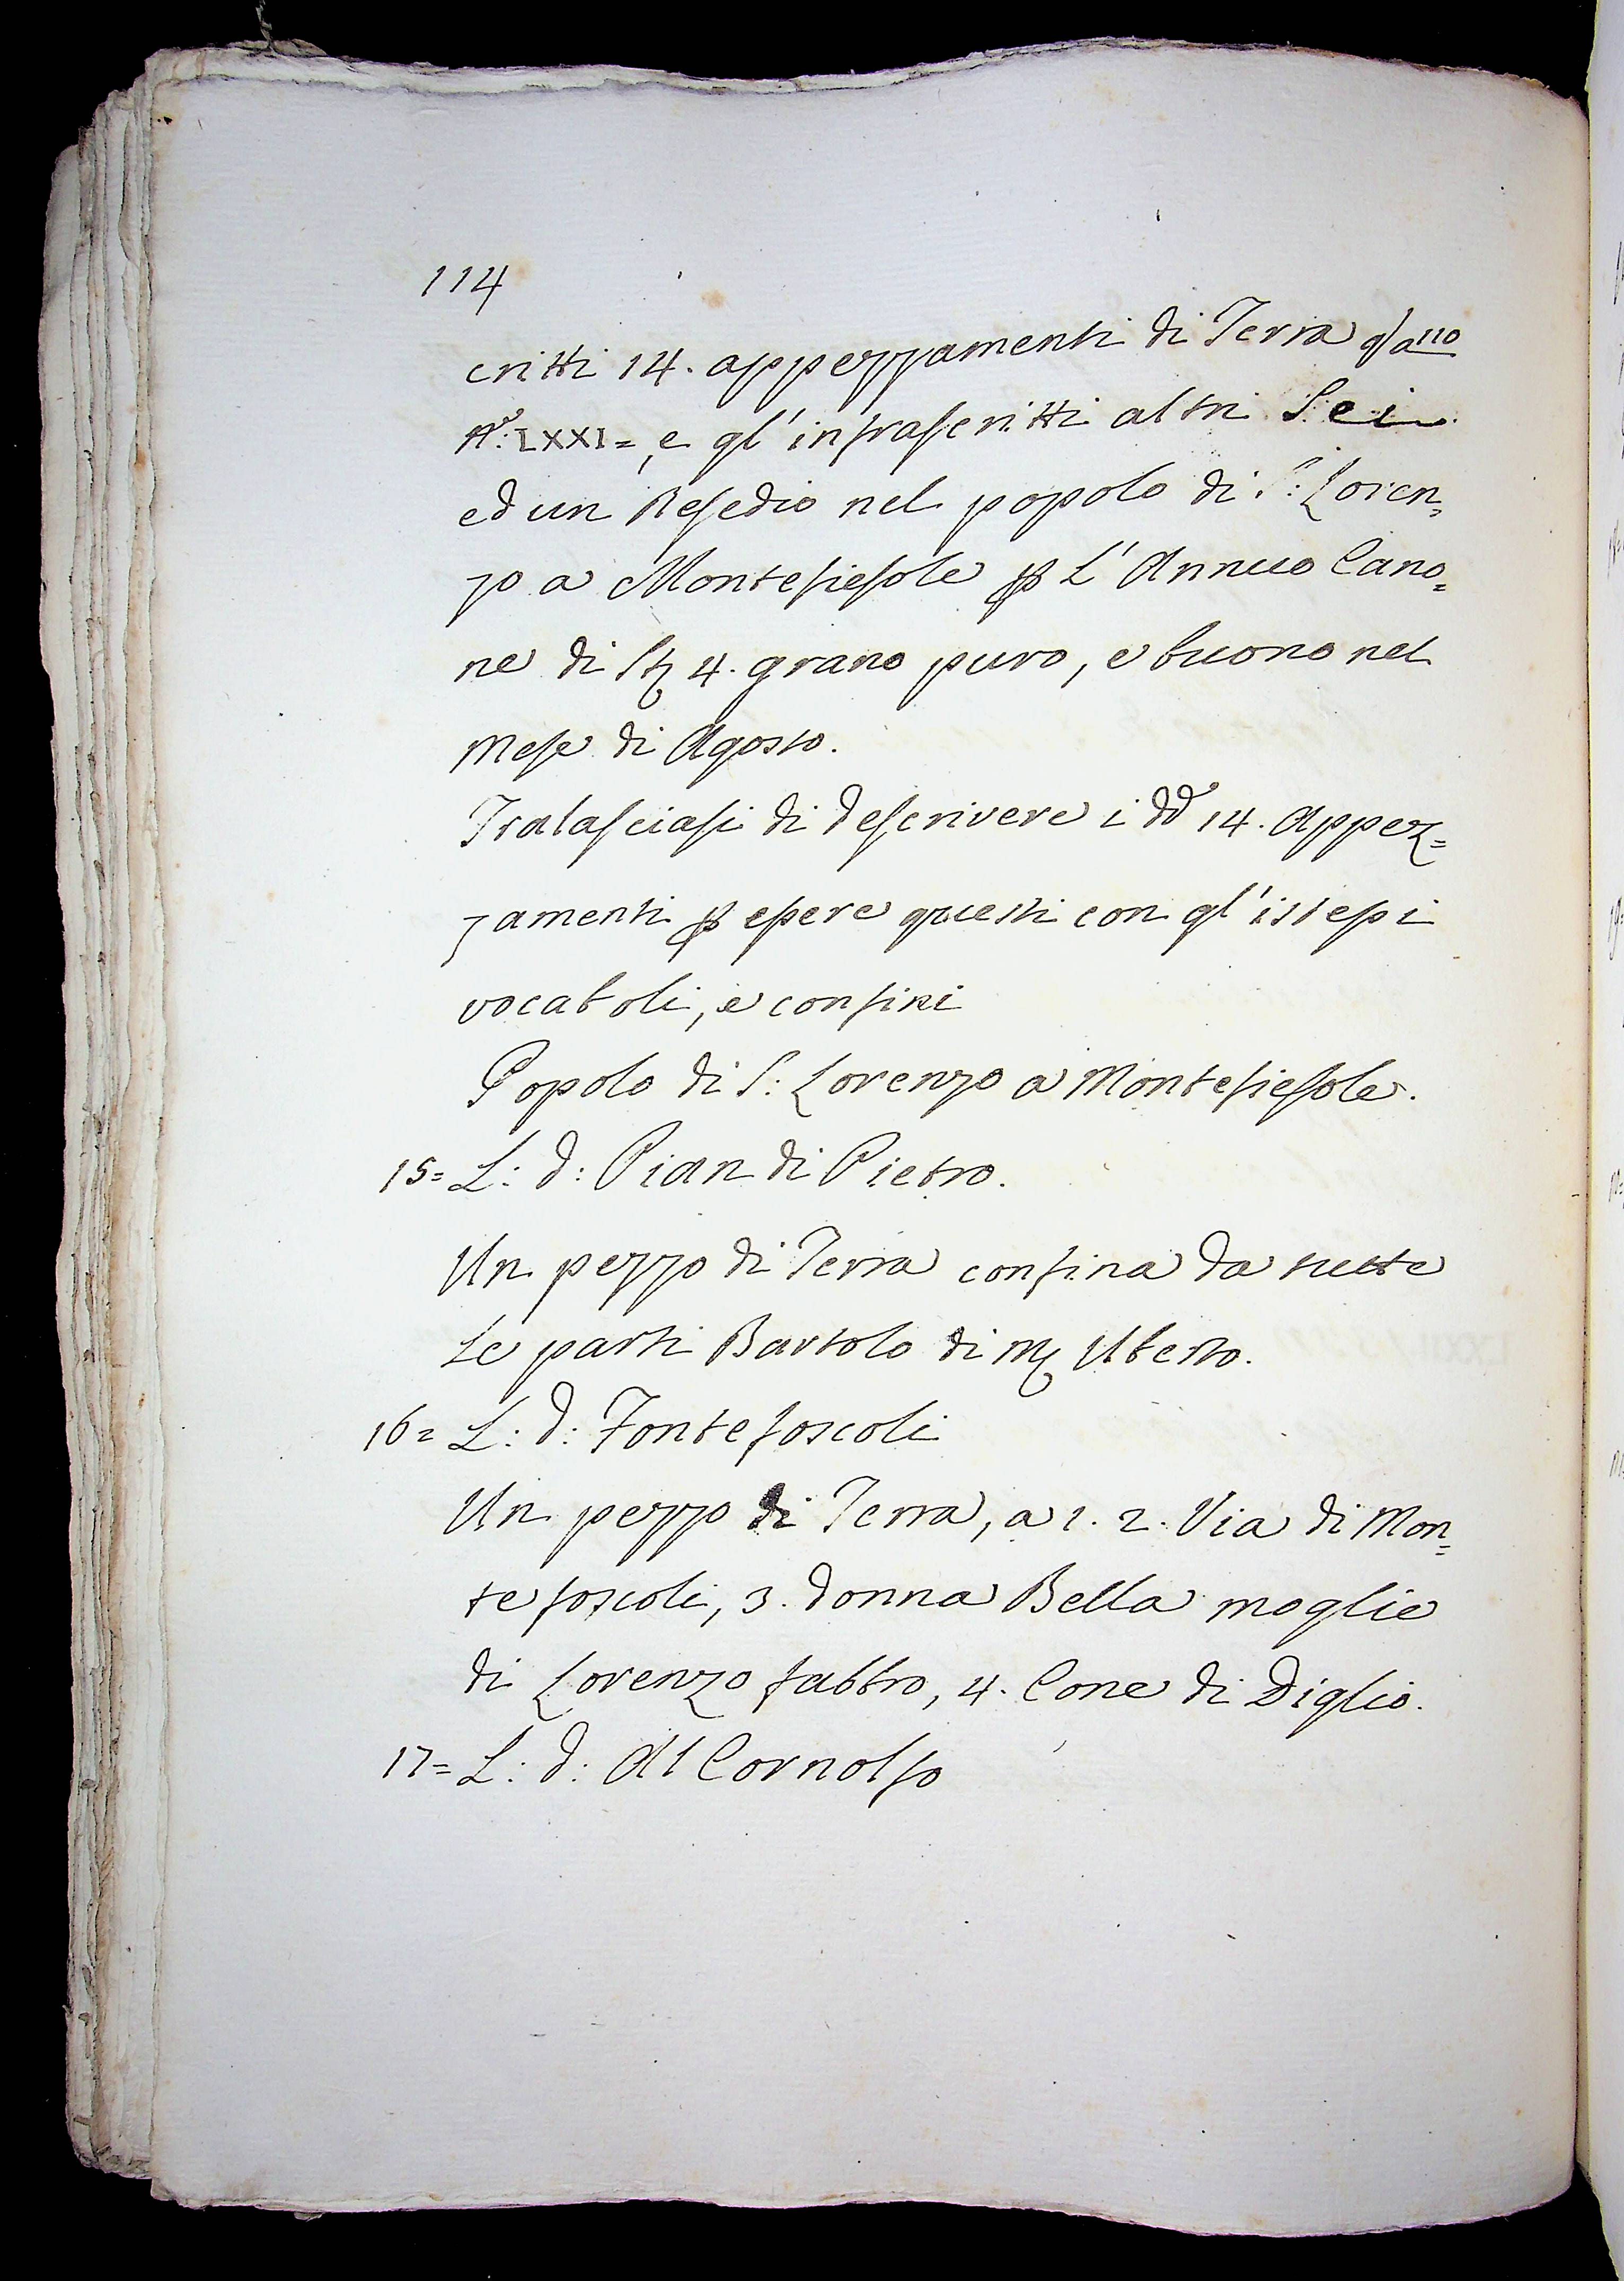 114
critti 14. appezzamenti di Terra
N.º: LXXI=, e gl'infrascritti altri Sei
ed un Resedio nel popolo di S: Loren=
zo a Montefiesole ꝑ L'Annuo Cano=
ne di St 4. grano puro, e buono nel
Mese di Agosto.
Tralasciasi di descrivere i dd.i 14. Appez=
zamenti ꝑ essere questi con gl'istessi
vocaboli, e confini
Popolo di S: Lorenzo a Montefiesole.
15= L: d: Pian di Pietro.
Un pezzo di Terra confina da tutte
Le parti Bartolo di M Uberto.
16= L: d: Fontefoscoli
Un pezzo di Terra, a 1. 2. Via di Mon=
tefoscoli, 3. donna Bella moglie
di Lorenzo fabbro, 4. Cone di Diglio.
17= L: d: Al Cornolfo